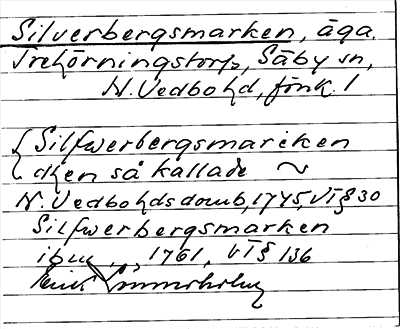 Silverbergsmarken, äga.
Trehörningstorp, Säby sn,
N. Vedbo hd, Jönk. l
Silfwerbergsmarcken
den så kallade ~
N. Vedbo hds domb, 1745, VI § 30
Silfwerbergsmarken
ibm, 1761, VI § 136